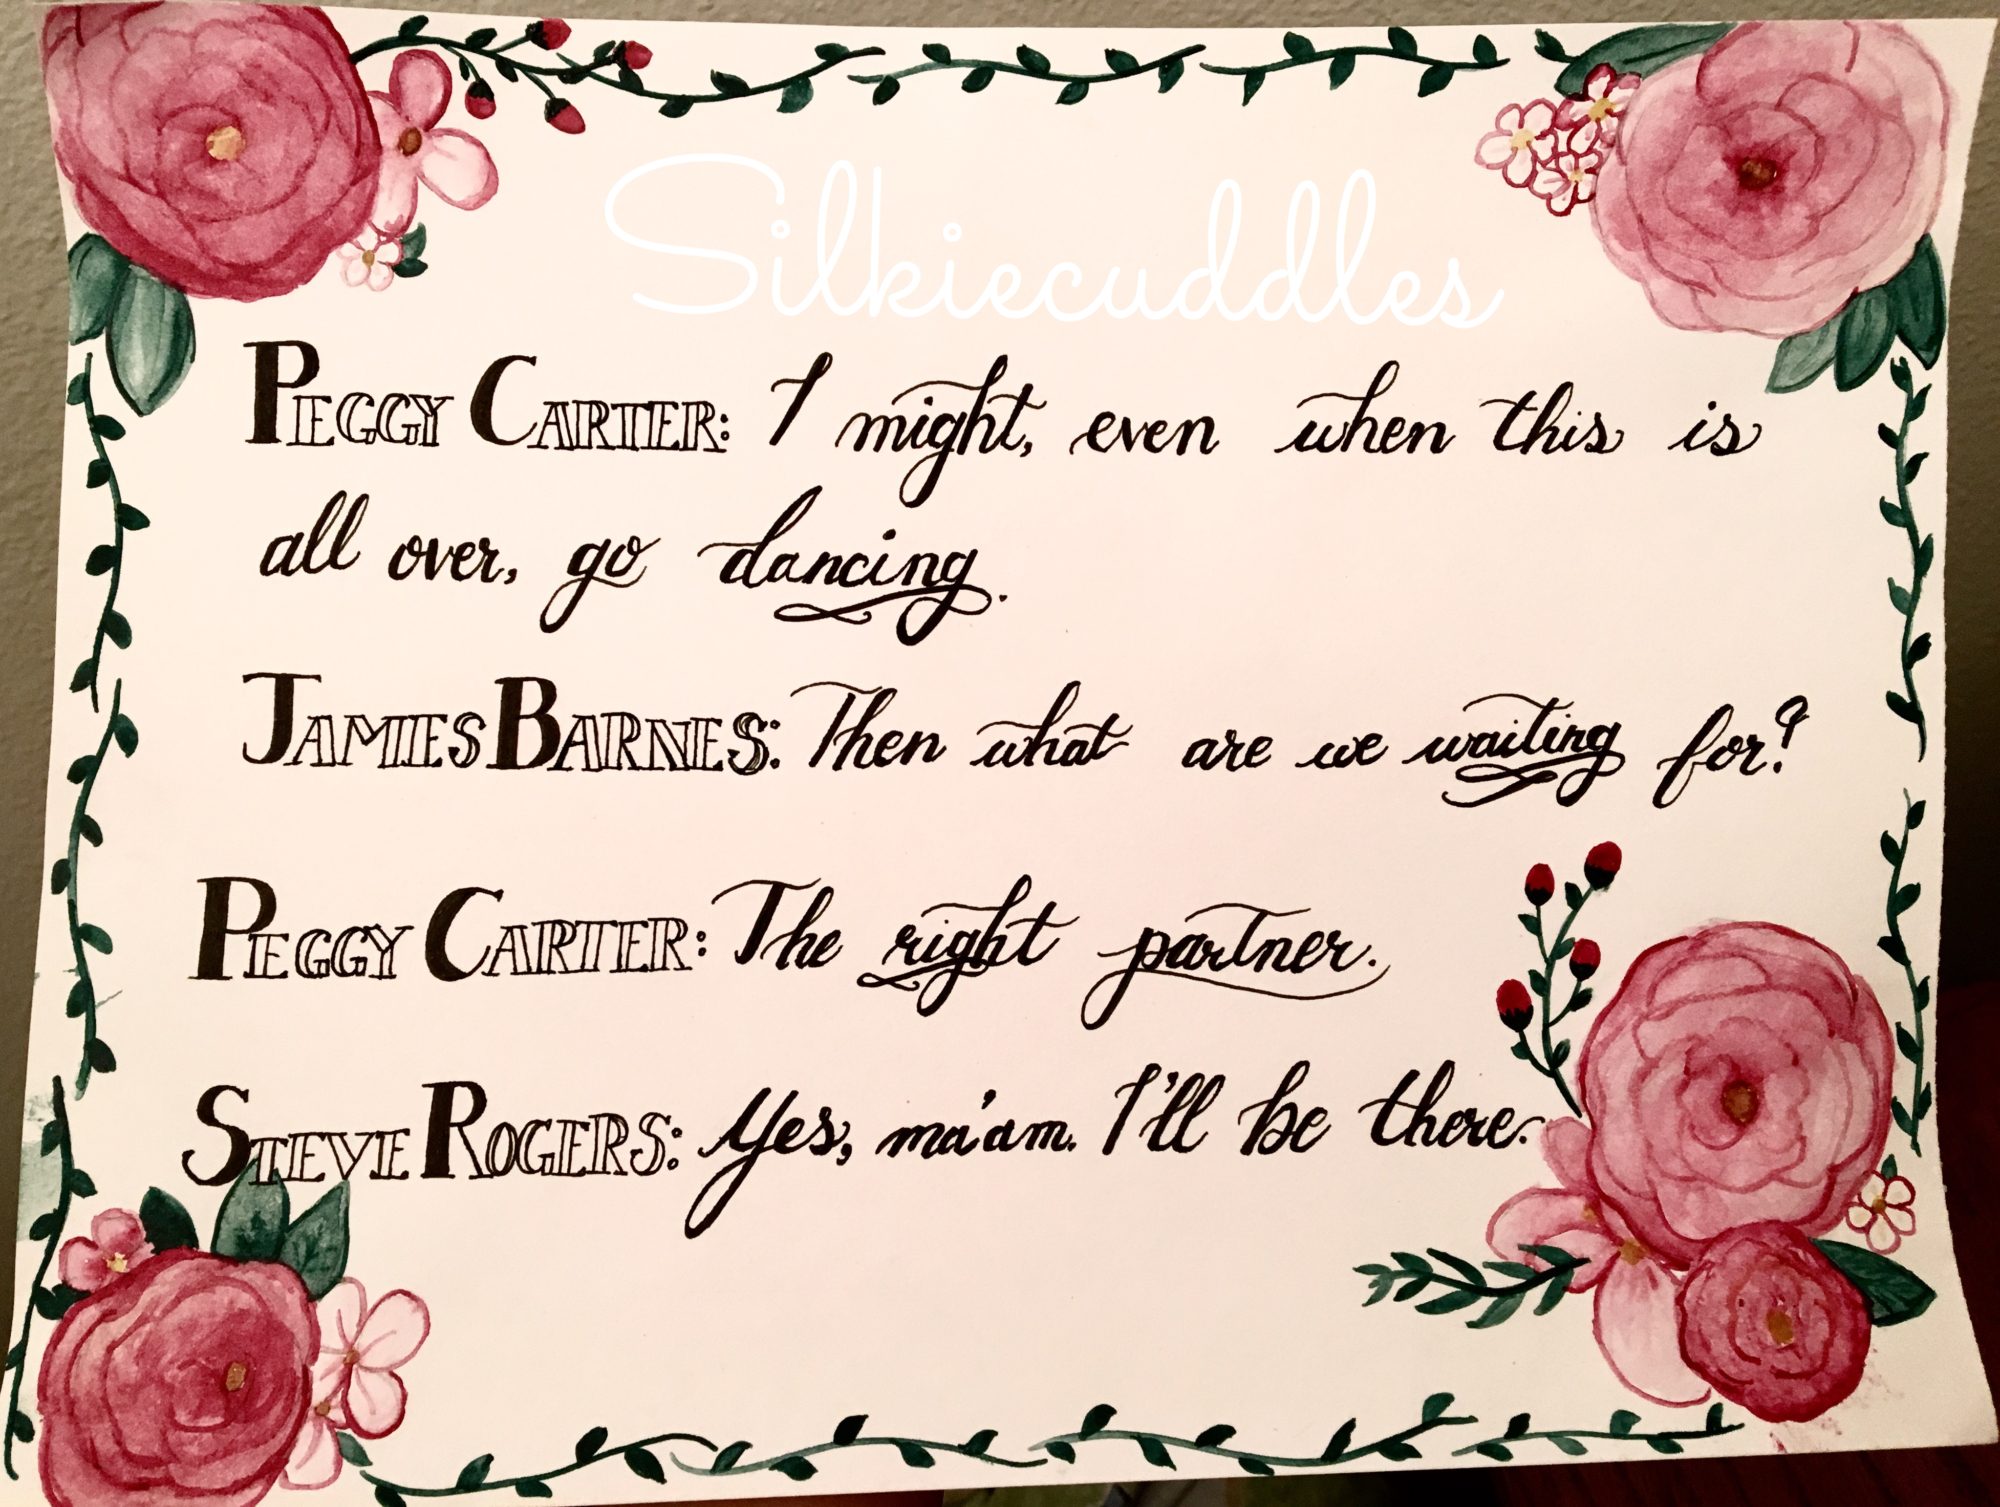 Silkiecuddles
PEGGY CARTER: I might, even when this is
all over, go dancing.
JAMES BARNES: Then what are we waiting for?
PEGGY CARTER: The right partner.
STEVE ROGERS: Yes, ma'am. I'll be there.